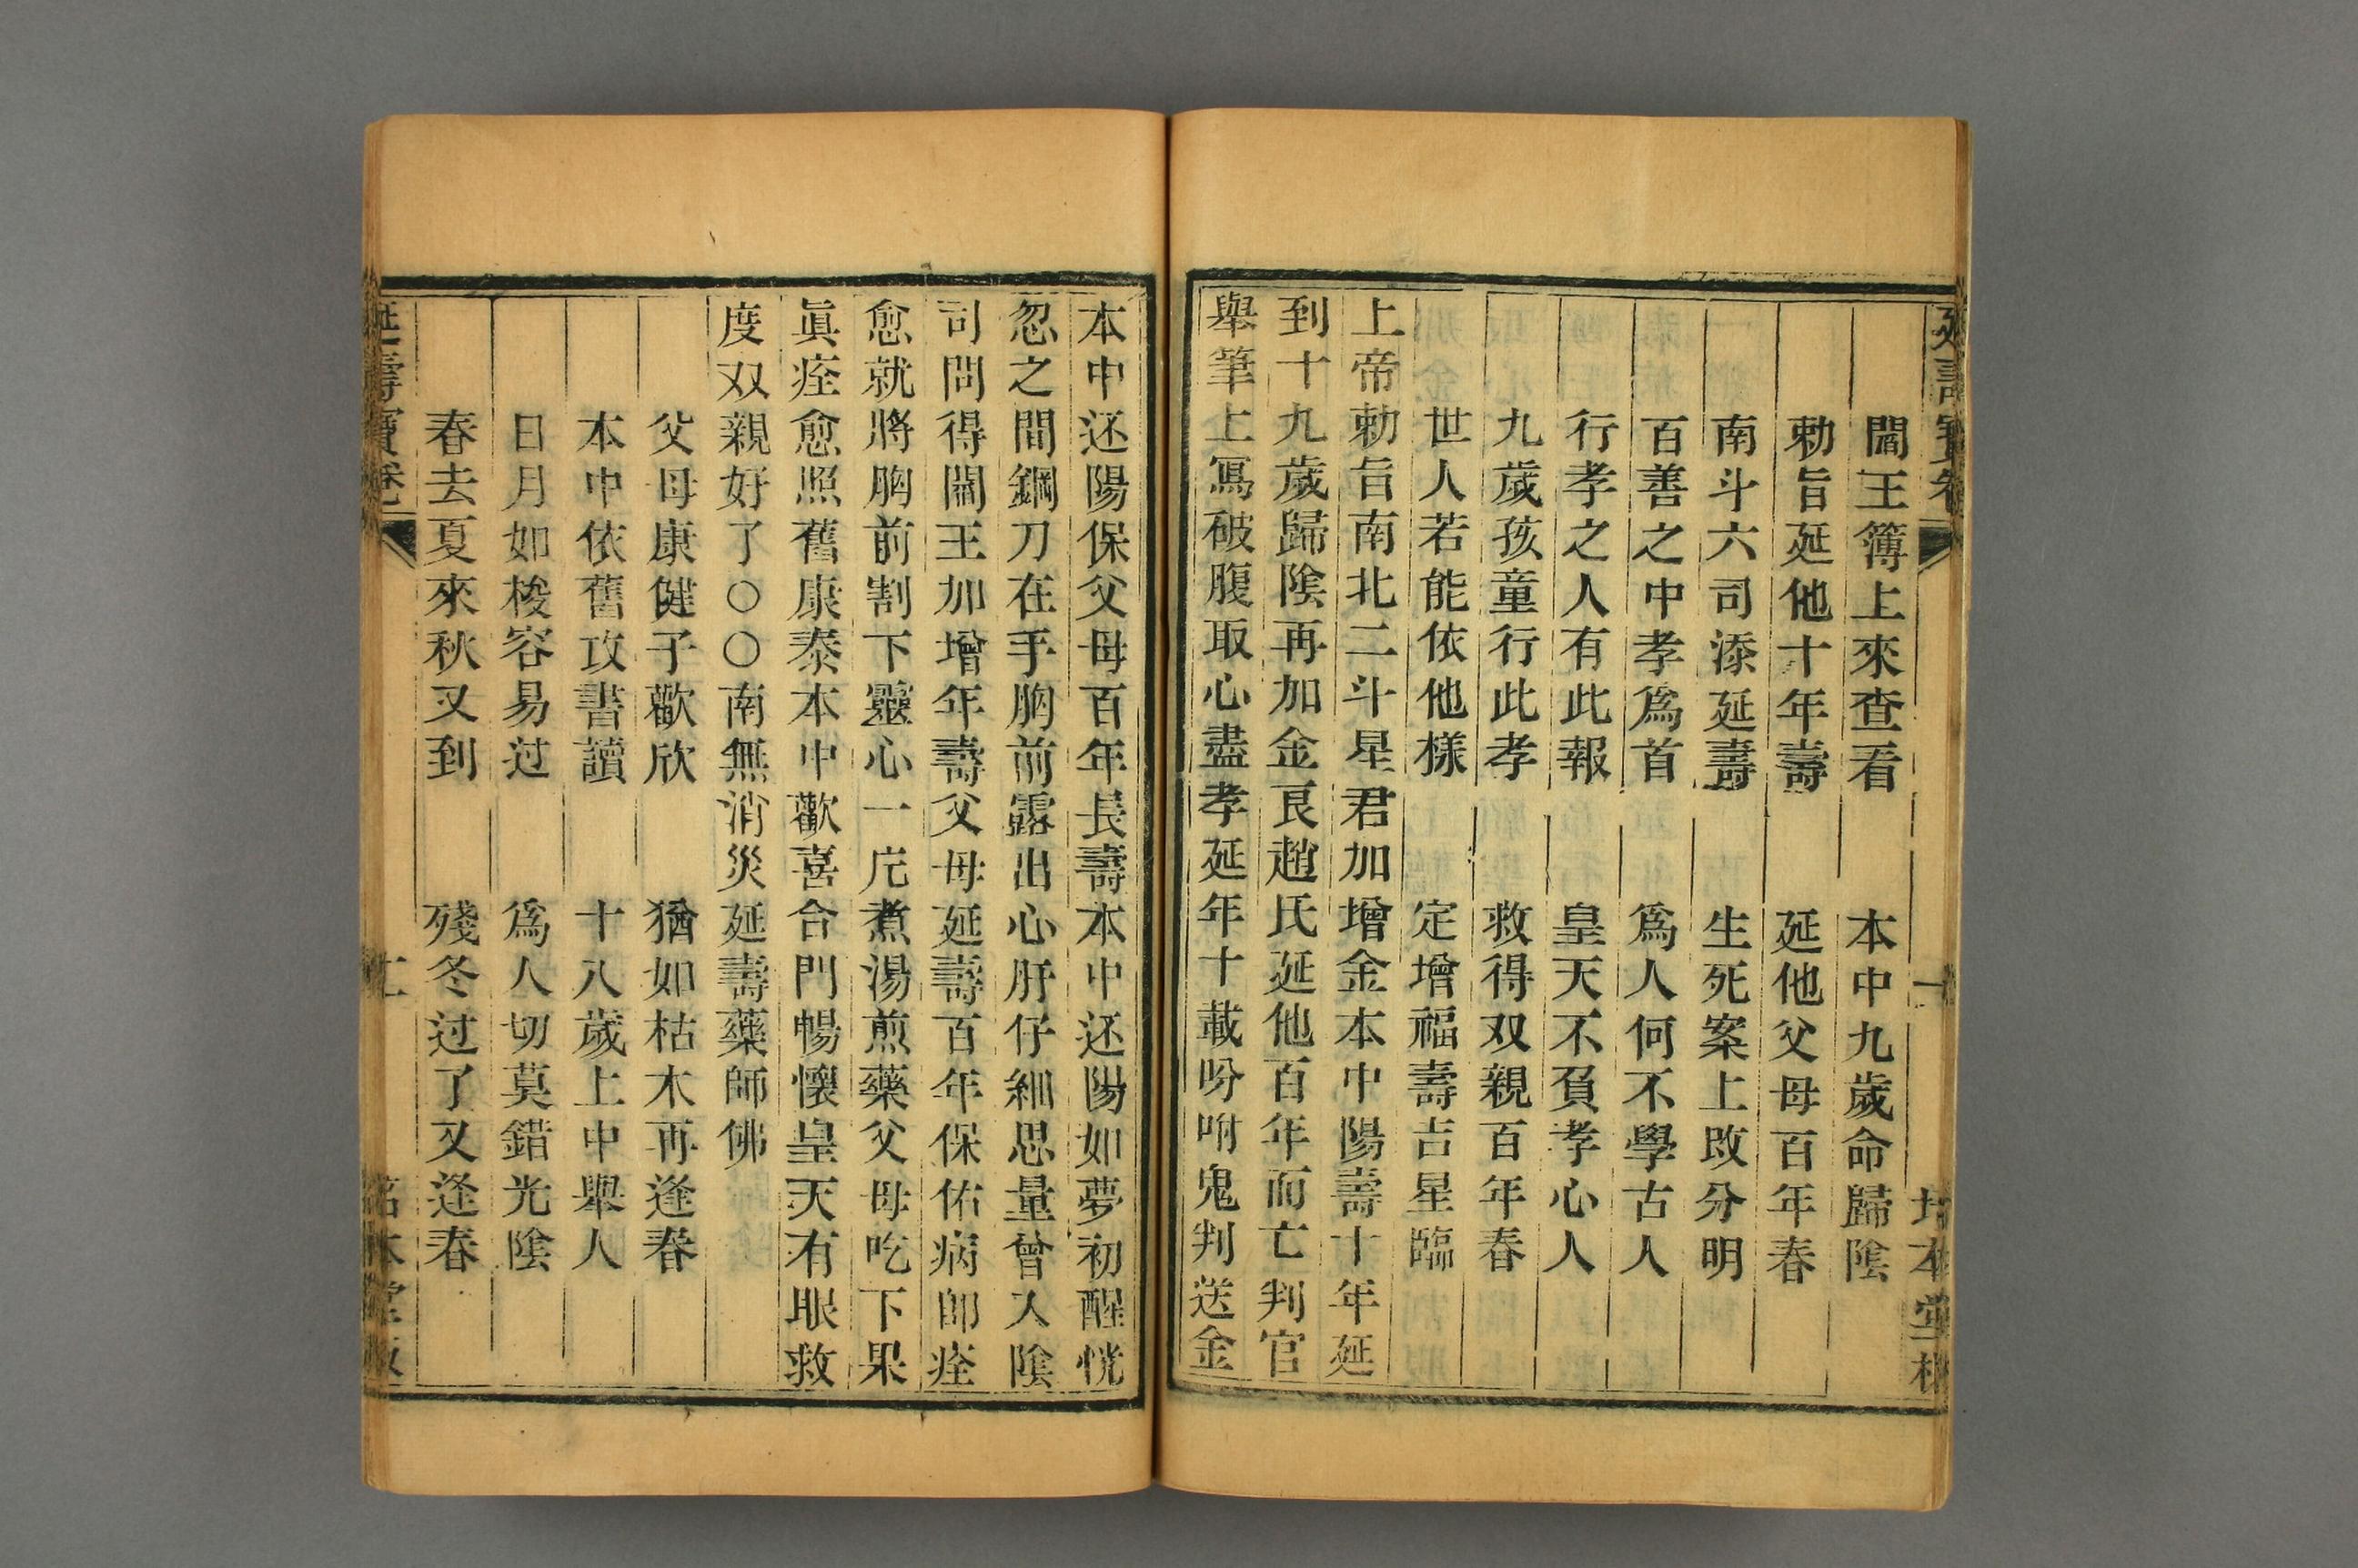 閻王簿上來查看　本中九歲命歸隂
勅旨延他十年壽　延他父母百年春
南斗六司添延壽　生死案上改分明
百善之中孝爲首　爲人何不學古人
行孝之人有此報　皇天不負孝心人
九歲孩童行此孝　救得双親百年春
世人若能依他樣　定增福壽吉星臨
上帝勅旨南北二斗星君加增金本中陽壽十年延
到十九歲歸隂再加金艮趙氏延他百年而亡判官
舉筆上冩破腹取心盡孝延年十載吩咐鬼判送金
本中还陽保父母百年長壽本中还陽如夢初醒恍
忽之間鋼刀在手胸前露出心肝仔細思量曾入隂
司問得閻王加增年壽父母延壽百年保佑病卽痊
愈就將胸前割下靈心一片煮湯煎藥父母吃下果
眞痊愈照舊康泰本中歡喜合門暢懷皇天有眼救
度双親好了○○南無消災延壽藥師佛
父母康健子歡欣　猶如枯木再逢春
本中依舊攻書讀　十八歲上中舉人
日月如梭容易过　爲人切莫錯光隂
春去夏來秋又到　殘冬过了又逢春
延壽寶卷